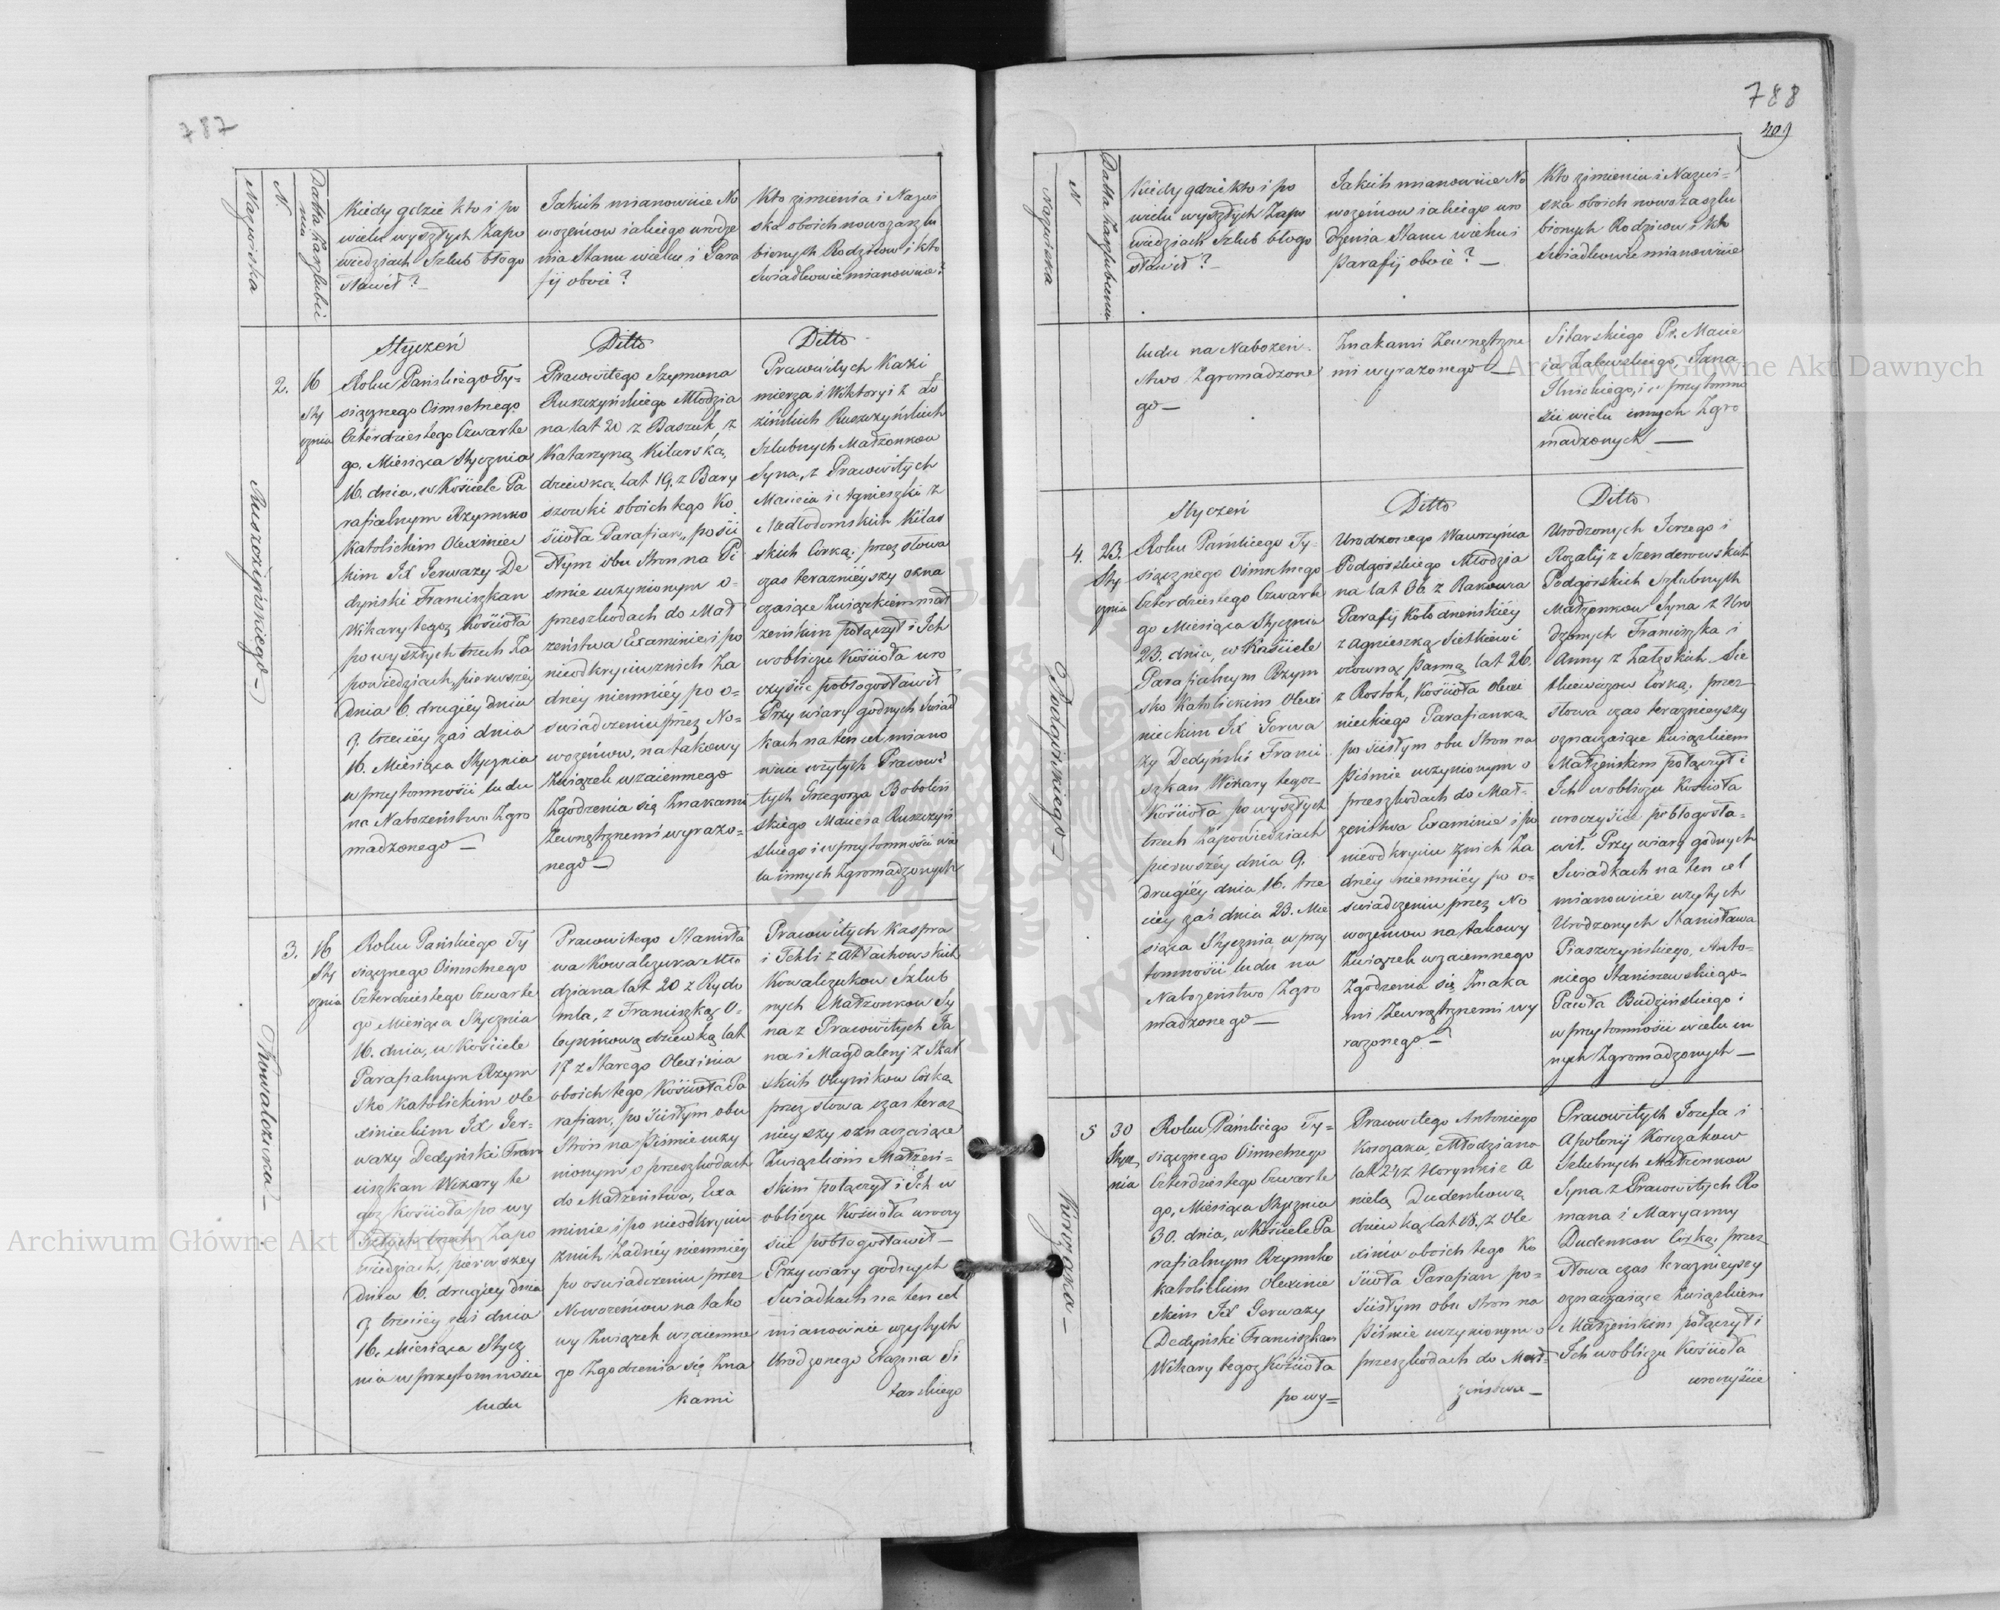 787
Nazwiska
N
Datta Zaszlubie
nia
Kiedy gdzie kto i po
wielu wyszłych Zapo
wiedziach Szlub błogo
sławił?
Jakich mianowicie No
wozeńcow i iakiego urodze
nia Stanu wieku i Para
fij oboie?
Kto z imienia i Nazwi
ska oboich nowozaszlu
bionych Rodzicow i kto
Swiadkowie mianowicie?
Styczeń
Ditto
Ditto
2.
16
Sty
cznia
Roku Pańskiego Ty=
siącznego Ośmsetnego
Czterdziestego Czwarte
go, Miesiąca Stycznia
16. dnia, w Kościele Pa
rafialnym Rzymsko
Katolickim Olexiniec
kim JX Gerwazy De
dyński Franciszkan
Wikary tegoz Kościoła
po wyszłych trzech Za
powiedziach, pierwszéy
dnia 6. drugiéy dnia
9. trzeciéy zaś dnia
16. Miesiąca Stycznia
w przytomności ludu
na Nabożeństwo Zgro
madzonego —
Prawowitego Szymona
Ruszczyńskiego Młodzia
na lat 20 z Baszuk, z
Katarzyną Kilarską,
dziewką, lat 19, z Bary
szowki oboich tego Ko
ścioła Parafian, po ści
słym obu Stron na Pi
śmie uczynionym o=
przeszkodach do Mał
żeństwa Examinie i po
nieodkryciu znich Ża
dnéy niemniéy po o=
swiadczeniu przez No=
wozeńcow, na takowy
Związek wzaiemnego
Zgodzenia się Znakami
Zewnętrznemi wyrażo=
nego —
Prawowitych Kazi
mierza i Wiktoryi z Ło
zińskich Ruszczyńskich
Szlubnych Małżonkow
Syna, z Prawowitych
Macieia i Agnieszki z
Nadłodomskich Kilar
skich Corką; przez słowa
czas teraznieyszy ozna
czaiące Związkiem mał
żeńskim połączył i Ich
w obliczu Kościoła uro
czyście pobłogosławił
Przy wiary godnych Swiad
kach na ten cel miano
wicie wzytych Prawowi
tych Grzegorza Boboliń
skiego Macieia Ruszczyń
skiego i w przytomności wie
lu innych Zgromadzonych
Ruszczyńskiego —
3.
16
Sty
cznia
Roku Pańskiego Ty
siącznego Ośmsetnego
Czterdziestego Czwarte
go Miesiąca Stycznia
16. dnia, w Kościele
Parafialnym Rzym
sko Katolickim Ole
xinieckim JX Ger=
wazy Dedyński Fran
ciszkan Wikary te
goz Kościoła po wy
szłych trzech Zapo
wiedziach, pierwszey
dnia 6. drugiéy dnia
9. trzeciéy zaś dnia
16. Miesiąca Stycz
nia w przytomności
ludu
Prawowitego Stanisła
wa Kowalczuka Mło
dziana lat 20 z Rydo
mla, z Franciszką O=
leynikową dziewką lat
17 z Starego Olexinca
oboich tego Kościoła Pa
rafian, po ścisłym obu
Stron na Piśmie uczy
nionym o przeszkodach
do Małżeństwa, Exa
minie i po nieodkryciu
znich, Żadnéy niemniéy
po oswiadczeniu przez
Nowozeńcow na tako
wy Związek wzaiemne
go Zgodzenia się Zna
kami
Prawowitych Kaspra
i Tekli z Małachowskich
Kowalczukow Szlub
nych Małżonkow Sy
na z Prawowitych Ja
na i Magdaleny z Skal
skich Oleynikow Corką
przez słowa czas teraz
nieyszy oznaczaiące
Związkiem Małżeń=
skim połączył i Ich w
obliczu Kościoła uroczy
scie pobłogosławił —
Przy wiary godnych
Swiadkach na ten cel
mianowicie wzytych
Urodzonego Erazma Si
tarskiego
Kowalczuka —
788
409
Nazwiska
N
Datta Zaszlubienia
Kiedy gdzie kto i po
wielu wyszłych Zapo
wiedziach Szlub błogo
sławił? —
Jakich mianowicie No
wozeńcow i iakiego uro
dzenia Stanu wieku i
Parafij oboie? —
Kto z imienia i Nazwi=
ska oboich nowo zaszlu
bionych Rodzicow i kto
Swiadkowie mianowicie
ludu na Nabożeń
stwo Zgromadzone
go —
Znakami Zewnętrzne
mi wyrażonego —
Sitarskiego Pr. Macie
ia Zalewskiego, Jana
Ilnickiego, i w przytomno
ści wielu innych Zgro
madzonych —
Styczeń
Ditto
Ditto
4.
23.
Sty
cznia
Roku Pańskiego Ty=
siącznego Ośmsetnego
Czterdziestego Czwarte
go Miesiąca Stycznia
23. dnia, w Kościele
Parafialnym Rzym
sko Katolickim Olexi
nieckim JX Gerwa
zy Dedyński Franci
szkan Wikary tegoz
Kościoła po wyszłych
trzech Zapowiedziach
pierwszéy dnia 9.
drugiéy dnia 16. trze
ciéy zaś dnia 23. Mie
siąca Stycznia w przy
tomności ludu na
Nabożeństwo Zgro
madzonego —
Urodzonego Wawrzyńca
Podgorskiego Młodzia
na lat 36. z Rakowca
Parafij Kołodneńskiéy
z Agnieszką Sietkiewi
czowną Panną lat 26.
z Rostok, Kościoła Olexi
nieckiego Parafianką
po ścisłym obu Stron na
Piśmie uczynionym o
przeszkodach do Mał=
żeństwa Examinie i po
nieodkryciu znich Ża
dnéy niemniéy po o=
swiadczeniu przez No
wozeńcow na takowy
Związek wzaiemnego
Zgodzenia się Znaka
mi Zewnętrznemi wy
rażonego —
Urodzonych Jerzego i
Rozalij z Szenderowskich
Podgorskich Szlubnych
Małżonkow Syna z Uro
dzonych Franciszka i
Anny z Załęskich Sie
tkiewiczow Corką; przez
słowa czas teraznieyszy
oznaczaiące Związkiem
Małżeńskim połączył i
Ich w obliczu Kościoła
uroczyście pobłogosła=
wił. Przy wiary godnych
Swiadkach na ten cel
mianowicie wzytych
Urodzonych Stanisława
Piaszczyńskiego, Anto=
niego Staniszewskiego
Pawła Budzińskiego i
w przytomności wielu in
nych Zgromadzonych —
Podgorskiego —
5
30
Stycz
nia
Roku Pańskiego Ty=
siącznego Ośmsetnego
Czterdziestego Czwarte
go, Miesiąca Stycznia
30. dnia, w Kościele Pa
rafialnym Rzymsko
Katolickim Olexinie
ckim JX Gerwazy
Dedyński Franciszkan
Wikary tegoz Kościoła
po wy=
Prawowitego Antoniego
Korczaka, Młodziana
lat 24 z Horynki A
nielą Dudenkową
dziewką lat 18, z Ole
xinca oboich tego Ko
ścioła Parafian po=
ścisłym obu stron na
Piśmie uczynionym o
przeszkodach do Mał=
żeństwa —
Prawowitych Jozefa i
Apolonij Korczakow
Szlubnych Małżonkow
Syna z Prawowitych Ro
mana i Maryanny
Dudenkow Corką; przez
słowa czas teraznieyszy
oznaczaiące Związkiem
Małżeńskim połączył i
Ich w obliczu Kościoła
uroczyście
Korczaka —
Archiwum Główne Akt Dawnych
Archiwum Główne Akt Dawnych